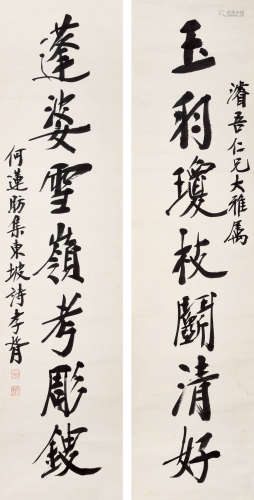 濬吾仁兄大雅属
玉羽瓊枝鬭清好
蓬婆雪嶺考彫鎪
何蓮舫集東坡詩李